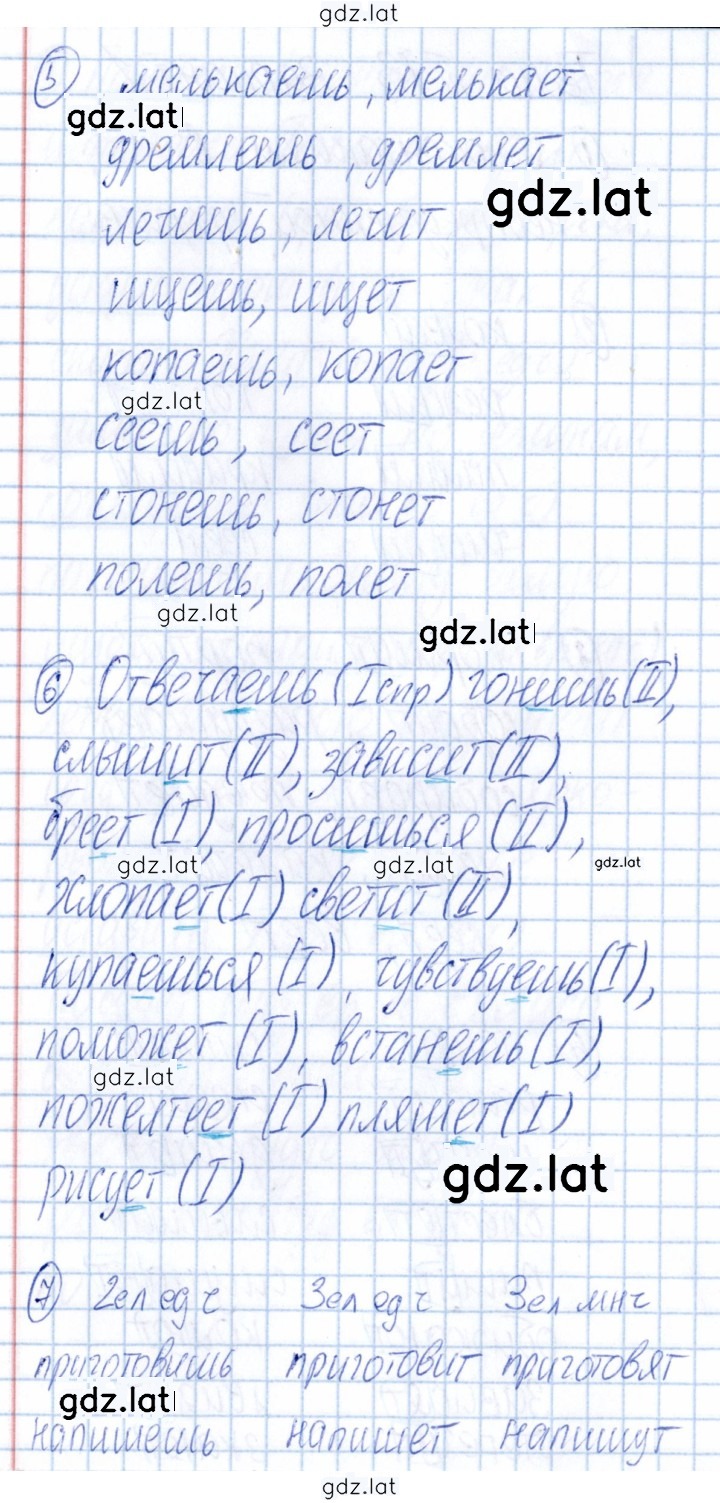 gdz.lat
5 мелькаешь, мелькает
gdz.lat
дремлешь, дремлет
gdz.lat
лечишь, лечит
ищешь, ищет
копаешь, копает
gdz.lat
сеешь, сеет
стонешь, стонет
полешь, полет
gdz.lat
gdz.lat
6 Отвечаешь (I спр) гонишь (II),
слышит (II), зависит (II),
бреет (I), просишься (II),
gdz.lat gdz.lat gdz.lat
хлопает (I) светит (II),
купаешься (I), чувствуешь (I),
поможет (I), встанешь (I),
gdz.lat
пожелтеет (I) пляшет (I)
gdz.lat
рисует (I)
7 2ел ед ч 3ел ед ч 3ел мнч
приготовишь приготовит приготовят
gdz.lat
напишешь напишет напишут
gdz.lat